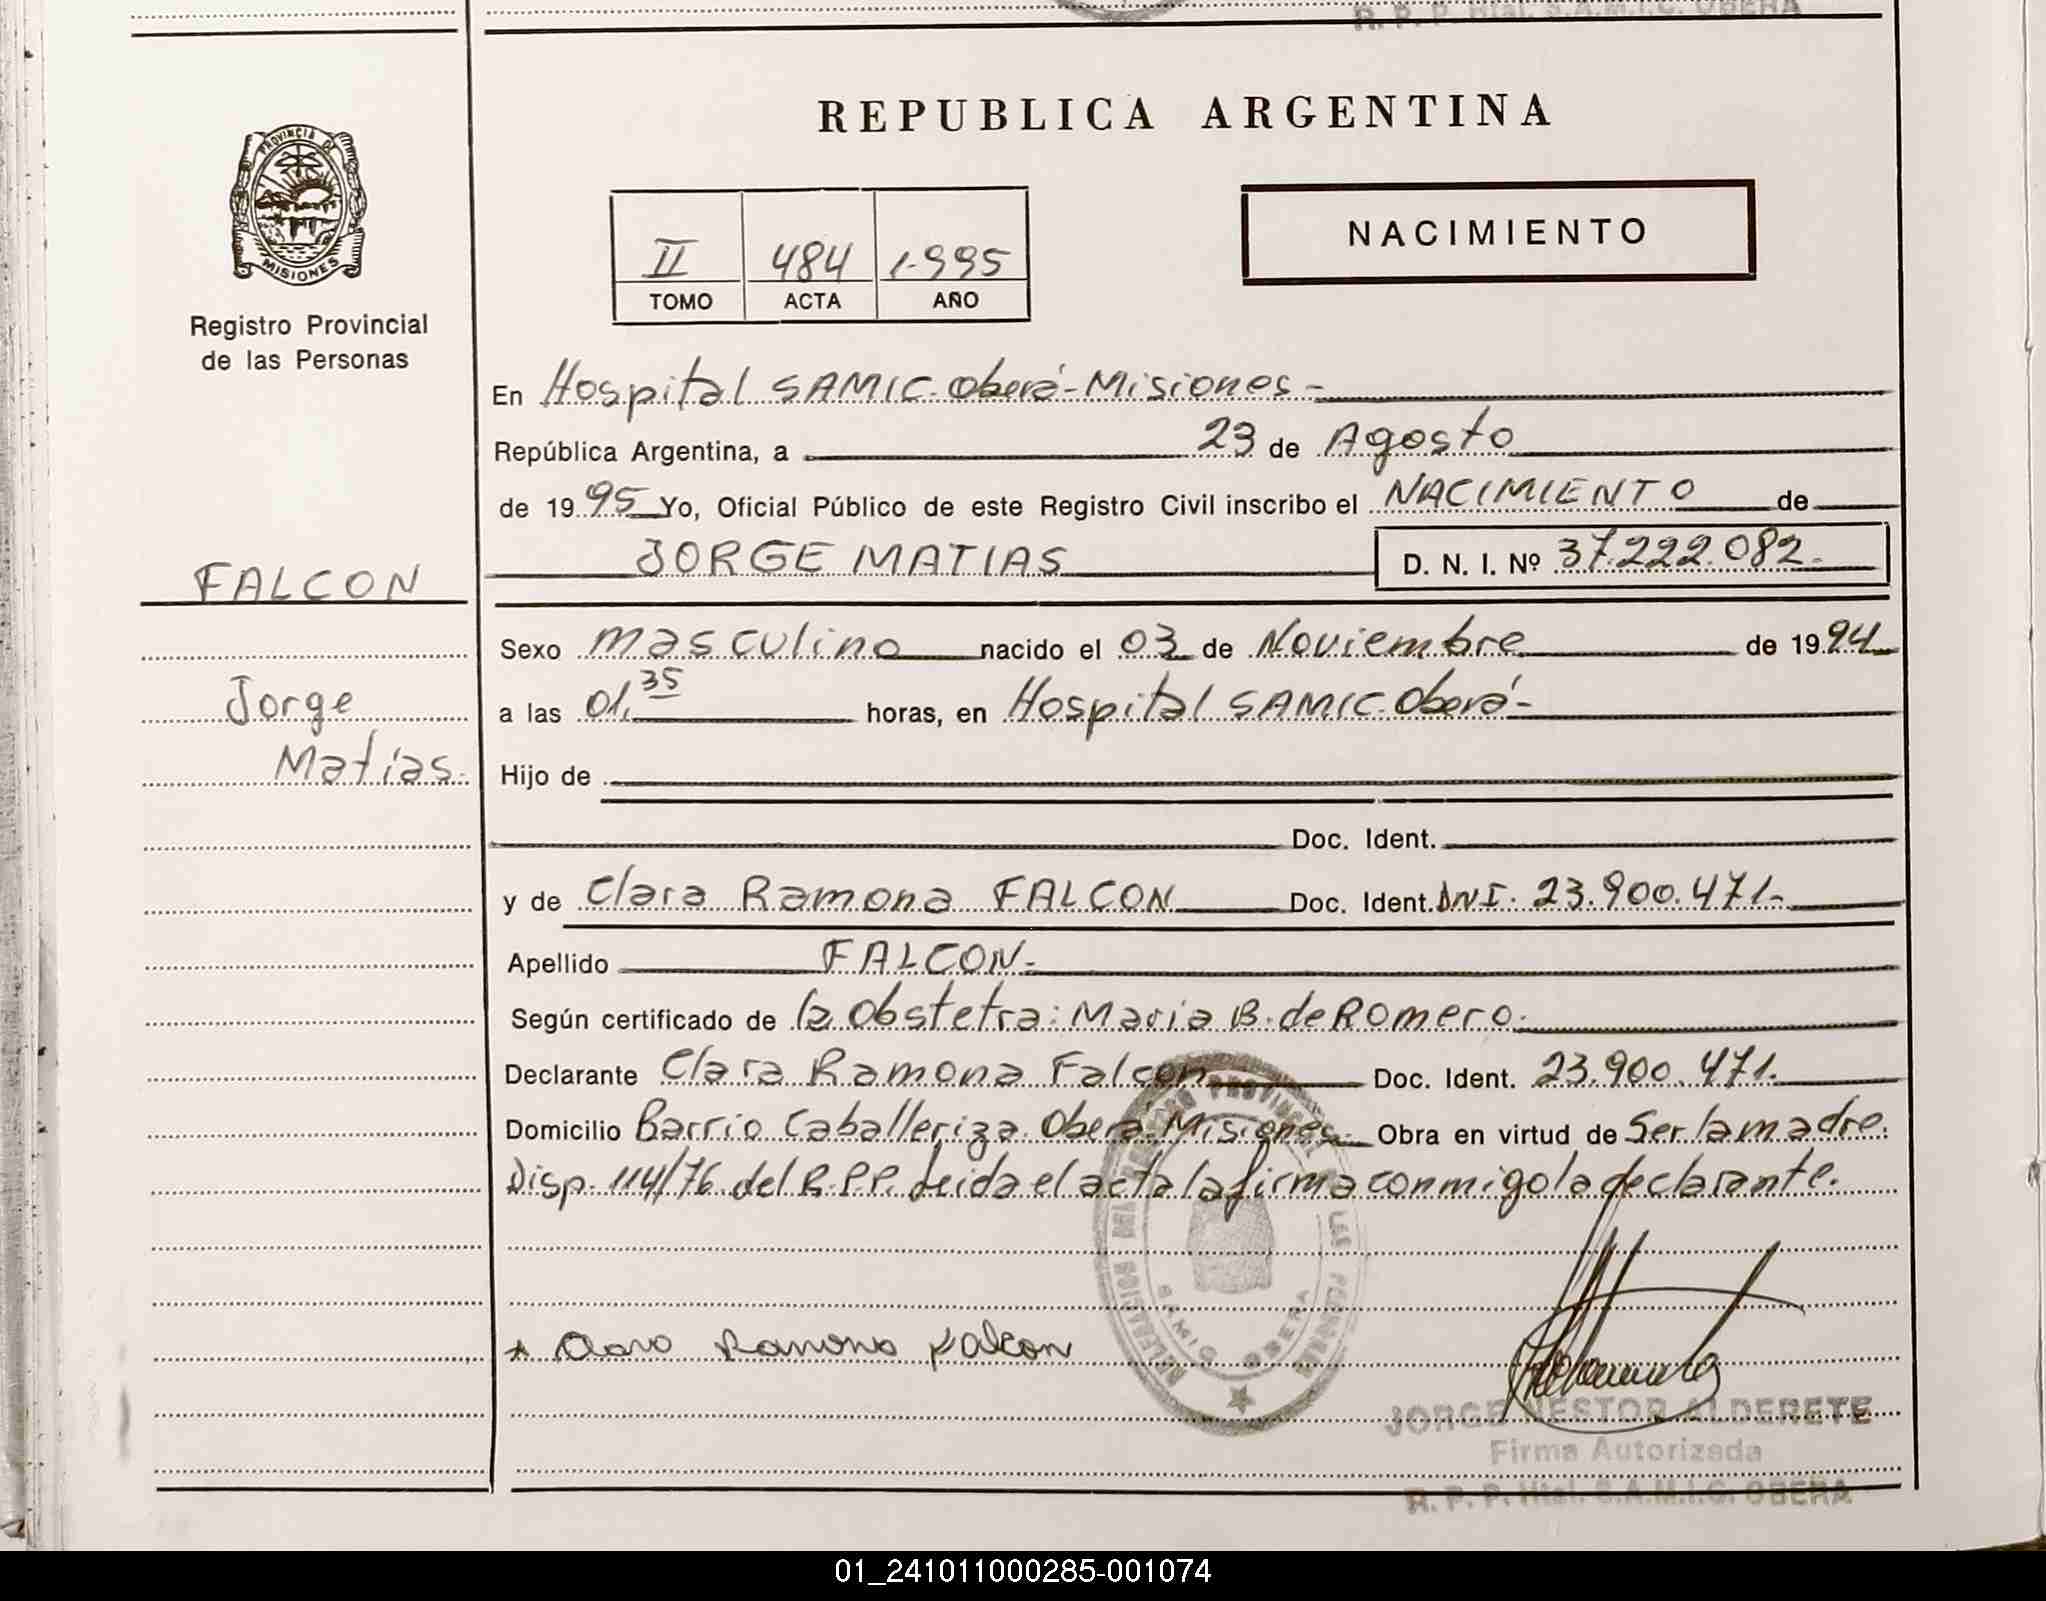 R. P. P. Htal. S.A.M.I.C. OBERA
REPUBLICA ARGENTINA
NACIMIENTO
II 484 1.995
TOMO ACTA AÑO
PROVINCIA DE
MISIONES
Registro Provincial
de las Personas
FALCON
Jorge
Matías.
En Hospital SAMIC. Oberá-Misiones-
República Argentina, a 23 de Agosto
de 19 95 Yo, Oficial Público de este Registro Civil inscribo el NACIMIENTO de
JORGE MATIAS D. N. I. Nº 37.222.082.
Sexo masculino nacido el 03 de Noviembre de 19 94
a las 01.35 horas, en Hospital SAMIC. Oberá-
Hijo de
Doc. Ident.
y de Clara Ramona FALCON Doc. Ident. DNI. 23.900.471-
Apellido FALCON-
Según certificado de la Obstetra: Maria B. de Romero.
Declarante Clara Ramona Falcon Doc. Ident. 23.900.471.
Domicilio Barrio Caballeriza. Oberá Misiones. Obra en virtud de Ser la madre.
Disp. 114/76 del R.P.P. Leida el acta la firma conmigo la declarante.
DELEGACION DEL REGISTRO PROVINCIAL DE LAS PERSONAS
SAMIC OBERA
Clara Ramona Falcon
JORGE NESTOR ALDERETE
Firma Autorizada
R. P. P. Htal. S.A.M.I.C. OBERA
01_241011000285-001074